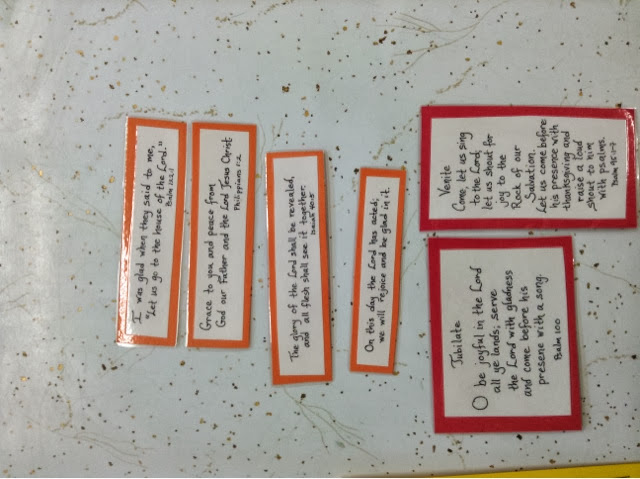 I was glad when they said to me,
"Let us go to the house of the Lord."
Psalm 122:1
Grace to you and peace from
God our Father and the Lord Jesus Christ
Philippians 1:2
The glory of the Lord shall be revealed,
and all flesh shall see it together.
Isaiah 40:5
On this day the Lord has acted;
we will rejoice and be glad in it.
Jubilate
O be joyful in the Lord
all ye lands; serve
the Lord with gladness
and come before his
presene with a song.
Psalm 100
Venite
Come, let us sing
to the Lord;
let us shout for
joy to the
Rock of our
Salvation.
Let us come before
his presence with
thanksgiving and
raise a loud
shout to him
with psalms.
Psalm 95:1-7